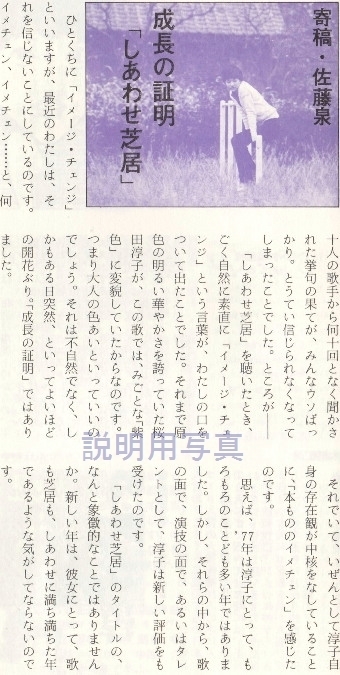 寄稿・佐藤泉
成長の証明
「しあわせ芝居」
ひとくちに「イメージ・チェンジ」
といいますが、最近のわたしは、そ
れを信じないことにしているのです。
イメチェン、イメチェン……と、何
十人の歌手から何十回となく聞かさ
れた挙句の果てが、みんなウソばっ
かり。とうてい信じられなくなって
しまったことでした。ところが──
「しあわせ芝居」を聴いたとき、
ごく自然に素直に「イメージ・チェ
ンジ」という言葉が、わたしの口を
ついて出たことでした。それまで原
色の明るい華やかさを誇っていた桜
田淳子が、この歌ではみごとな「紫
色」に変貌していたからなのです。
つまり大人の色あいといっていいの
でしょう。それは不自然でなく、し
かもある日突然、といってよいほど
の開花ぶり。「成長の証明」ではあり
ました。
それでいて、いぜんとして淳子自
身の存在観が中核をなしていること
に、「本もののイメチェン」を感じた
のです。
思えば、77年は淳子にとって、も
ろもろのことども多い年ではありま
した。しかし、それらの中から、歌
の面で、演技の面で、あるいはタレ
ントとして、淳子は新しい評価をも
受けたのです。
「しあわせ芝居」のタイトルの、
なんと象徴的なことではありません
か。新しい年は、彼女にとって、歌
も芝居も、しあわせに満ち満ちた年
であるような気がしてならないので
す。
説明用写真